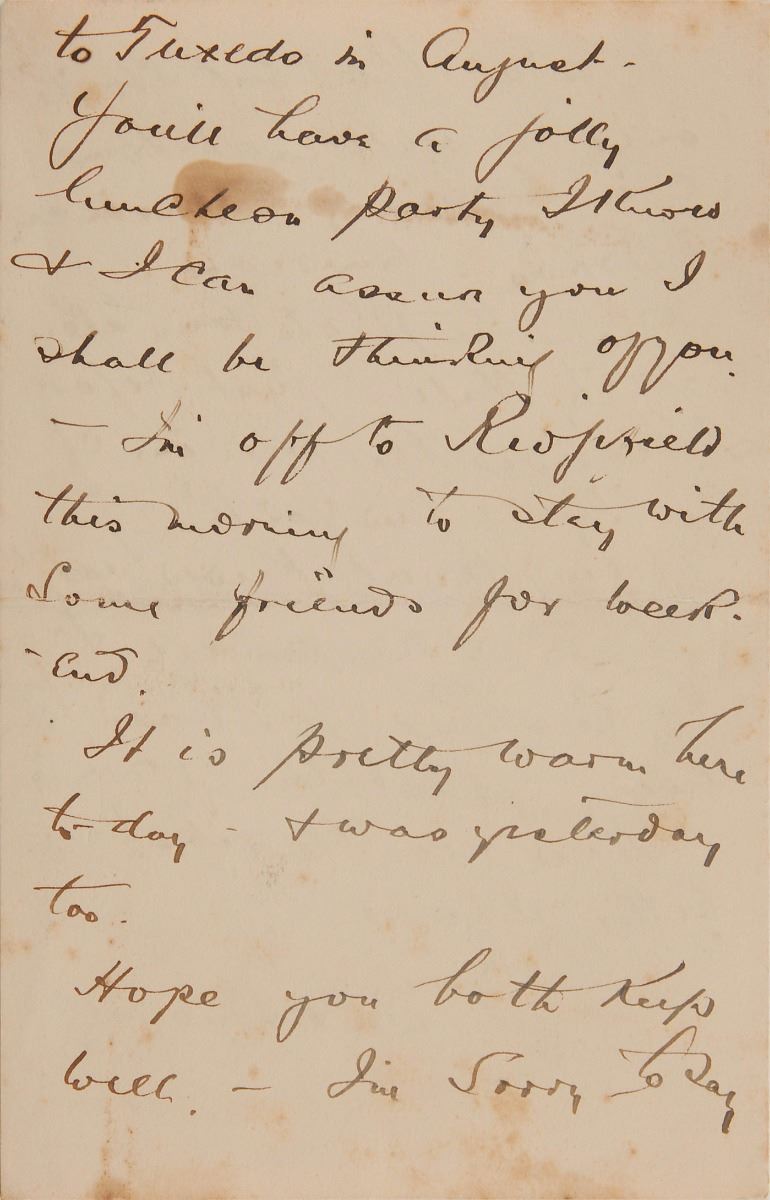 to Tuxedo in August -
You'll have a jolly
luncheon party I know
& I can assure you I
shall be thinking of you.
- I'm off to Ridgefield
this morning to stay with
some friends for week-
-end.
It is pretty warm here
to-day - & was yesterday
too.
Hope you both keep
well. - I'm sorry to say